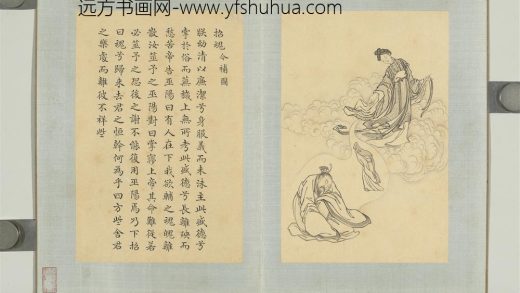 远方书画网-www.yfshuhua.com
招魂今補圖
朕幼清以廉潔兮身服義而未沬主此盛德兮
牽於俗而蕪穢上無所考此盛德兮長離殃而
愁苦帝告巫陽曰有人在下我欲輔之魂魄離
散汝筮予之巫陽對曰掌夢上帝其命難從若
必筮予之恐後之謝不能復用巫陽焉乃下招
曰魂兮歸來去君之恆幹何為乎四方些舍君
之樂處而離彼不祥些